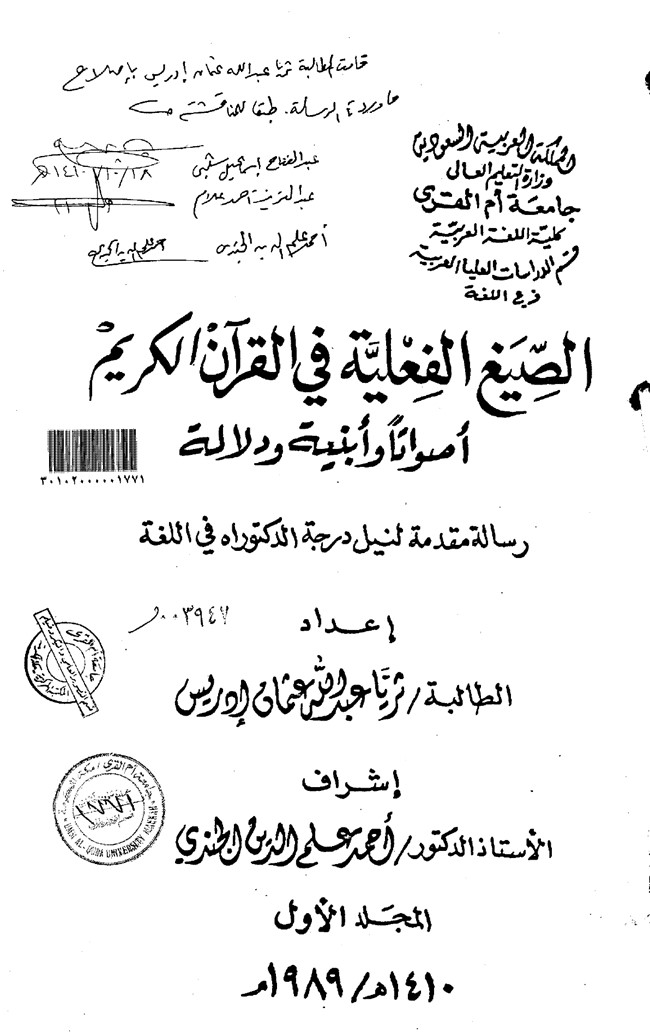 قامت الطالبة ثريا عبدالله عثمان إدريس بإصلاح
ما ورد في الرسالة. طبقا للمناقشة
عبدالفتاح إسماعيل شلبي
١٤١٠/١٠/١٨هـ
عبدالعزيز أحمد علام
أحمد علم الدين الجندي
المملكة العربية السعودية
وزارة التعليم العالى
جامعة أم القرى
كلية اللغة العربية
قسم الدراسات العليا العربية
فرع اللغة
الصِّيَغ الفِعْليَّة في القرآن الكريم
أصواتاً وأبنية ودلالة
٣٠١٠٢٠٠٠٠٠١٧٧١
رسالة مقدمة لنيل درجة الدكتوراه في اللغة
٠٠٣٩٤٧
إعداد
الطالبة/ ثريَّا عبدالله عثمان إدريس
جامعة أم القرى
إشراف
الأستاذ الدكتور/ أحمد علم الدين الجندي
جامعة أم القرى / مكة المكرمة
UMM AL-QURA UNIVERSITY MAKKAH
المجلد الأول
١٤١٠هـ/ ١٩٨٩م